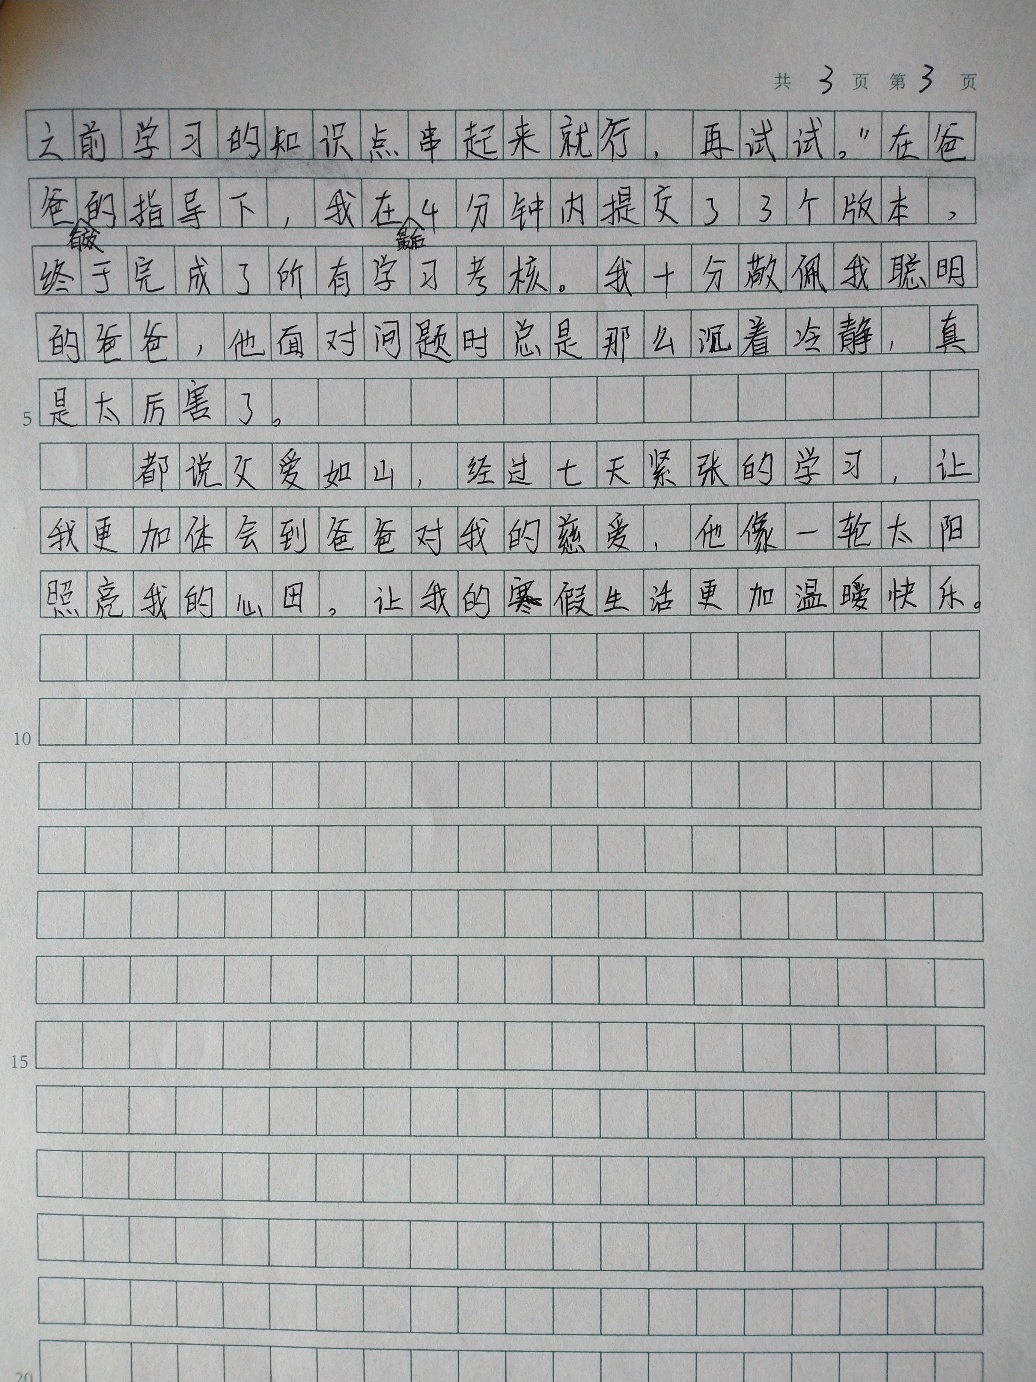 共 3 页 第 3 页
之前学习的知识点串起来就行，再试试。”在爸
爸的有效指导下，我在最后4分钟内提交了3个版本，
终于完成了所有学习考核。我十分敬佩我聪明
的爸爸，他面对问题时总是那么沉着冷静，真
5 是太厉害了。
都说父爱如山，经过七天紧张的学习，让
我更加体会到爸爸对我的慈爱，他像一轮太阳
照亮我的心田，让我的寒假生活更加温暖快乐。
10
15
20